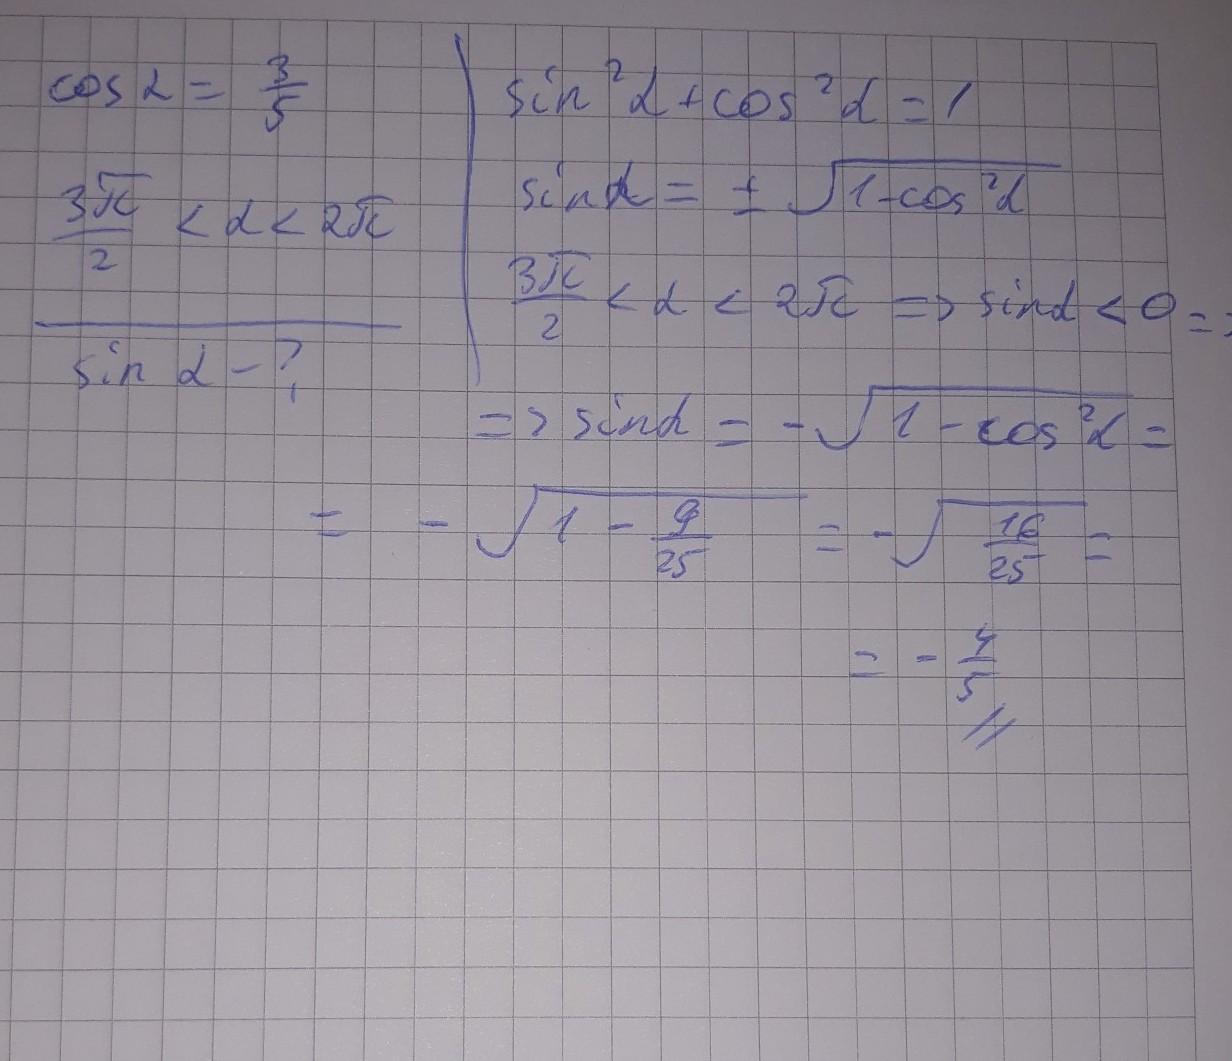 cos α = 3/5
3π/2 < α < 2π
sin α - ?
sin²α + cos²α = 1
sin α = ± √(1-cos²α)
3π/2 < α < 2π => sin α < 0 =>
=> sin α = - √(1 - cos²α) =
= - √(1 - 9/25) = - √(16/25) =
= - 4/5 //